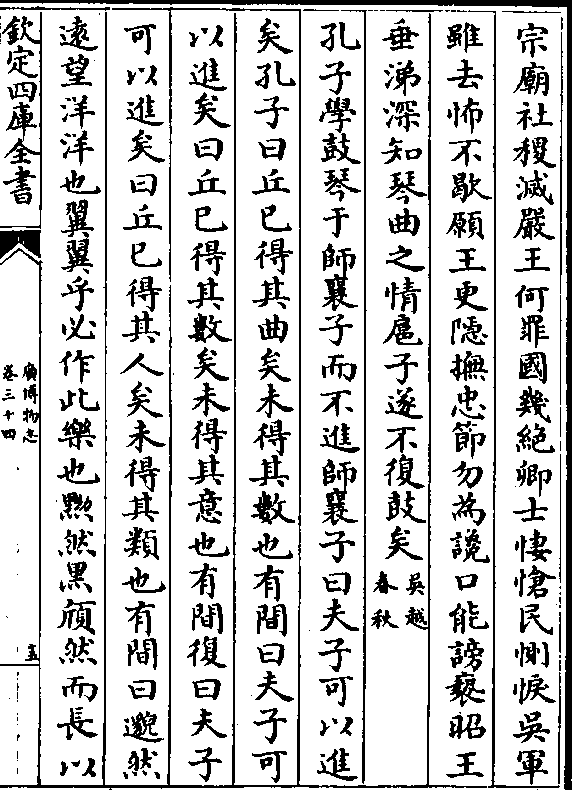 宗廟社稷滅嚴王何罪國幾絶卿士悽愴民惻悷吳軍
雖去怖不歇願王更隠撫忠節勿為讒口能謗䙝昭王
垂涕深知琴曲之情扈子遂不復鼓矣吳越春秋
孔子學鼓琴于師襄子而不進師襄子曰夫子可以進
矣孔子曰丘已得其曲矣未得其數也有間曰夫子可
以進矣曰丘已得其數矣未得其意也有間復曰夫子
可以進矣曰丘已得其人矣未得其類也有間曰邈然
逺望洋洋也翼翼乎必作此樂也黝然黑頎然而長以
欽定四庫全書
廣博物志
卷三十四
五